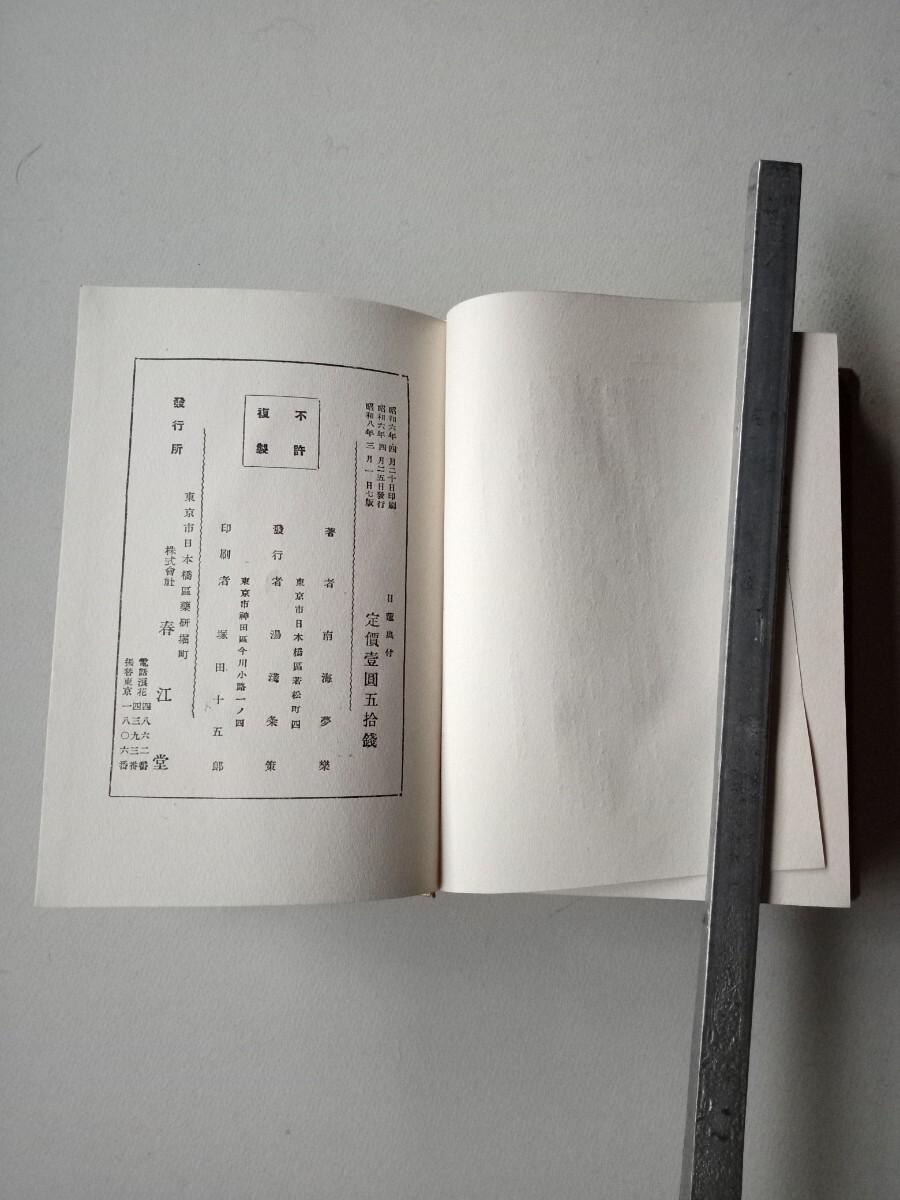 昭和六年四月二十日印刷
昭和六年四月二五日發行
昭和八年三月一日七版
日蓮奥付
定價壹圓五拾錢
不許
複製
著者 南海夢樂
東京市日本橋區若松町四
發行者 湯淺粂策
東京市神田區今川小路一ノ四
印刷者 塚田十五郎
發行所
東京市日本橋區藥研堀町
株式會社 春江堂
電話浪花四八六二番
四三九三番
振替東京一八〇六番